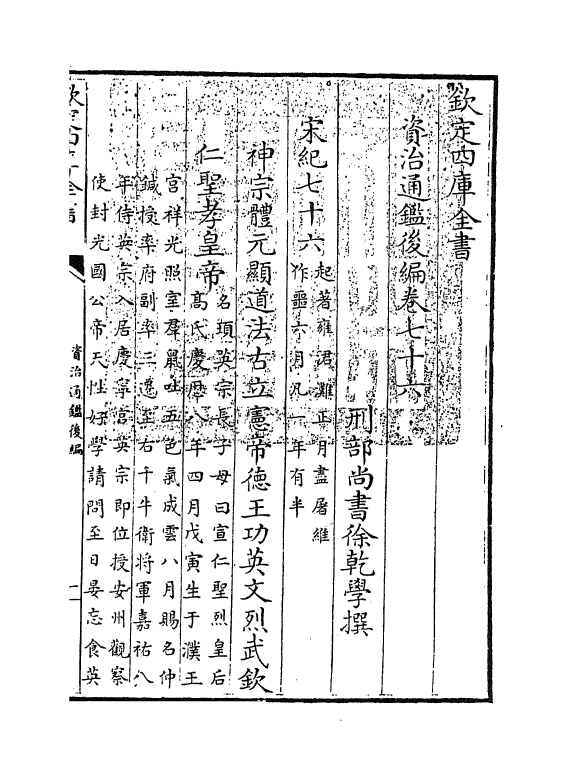 欽定四庫全書
資治通鑑後編卷七十六
刑部尚書徐乾學撰
宋紀七十六
起著雍涒灘正月盡屠維
作噩六月凡一年有半
神宗體元顯道法古立憲帝德王功英文烈武欽
仁聖孝皇帝
名頊英宗長子母曰宣仁聖烈皇后
高氏慶厯八年四月戊寅生于濮王
宫祥光照室羣鼠吐五色氣成雲八月賜名仲
鍼授率府副率三遷至右千牛衛將軍嘉祐八
年侍英宗入居慶寧宫英宗即位授安州觀察
使封光國公帝天性好學請問至日晏忘食英
資治通鑑後編
一